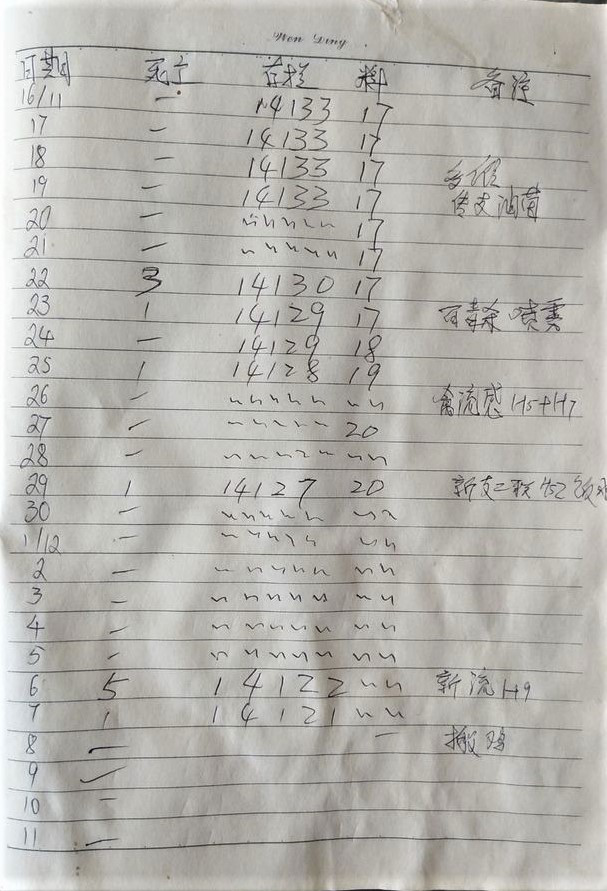 Wen Ding
日期 死亡 存栏 料 备注
16/11 — 14133 17
17 — 14133 17
18 — 14133 17
19 — 14133 17 传支油苗
20 — 〃〃〃〃〃 17
21 — 〃〃〃〃〃 17
22 3 14130 17
23 1 14129 17 喷雾
24 — 14129 18
25 1 14128 19
26 — 〃〃〃〃〃 〃〃 禽流感 H5+H7
27 — 〃〃〃〃〃 20
28 — 〃〃〃〃〃 〃〃
29 1 14127 20 新支二联
30 — 〃〃〃〃〃 〃〃
1/12 — 〃〃〃〃〃 〃〃
2 — 〃〃〃〃〃 〃〃
3 — 〃〃〃〃〃 〃〃
4 — 〃〃〃〃〃 〃〃
5 — 〃〃〃〃〃 〃〃
6 5 14122 〃〃 新流H9
7 1 14121 〃〃
8 — — 搬鸡
9 —
10 —
11 —